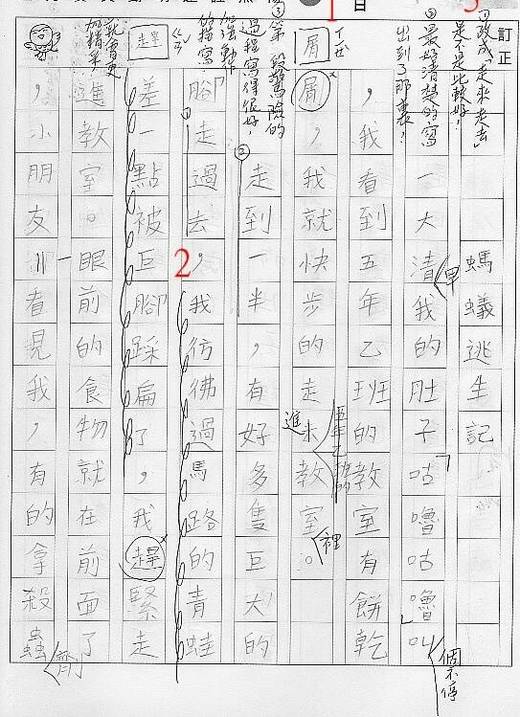 訂正
螞蟻逃生記
一大清我的肚子咕嚕咕嚕叫
早
個不停
，我看到五年乙班的教室有餅乾
屑，我就快步的走來教室。
進
五年乙班的
裡
走到一半，有好多隻巨大的
腳走過去，我彷彿過馬路的青蛙
差一點被巨腳踩扁了，我趕緊走
進教室。一眼前的食物就在前面了
，小朋友一看見我，有的拿殺蟲
劑
屑
ㄒㄧㄝˋ
①改成「走來走去」是不是比較好！
②最好清楚的寫出到了那裏！
③第一段驚險的過程寫得很好，
加強動作的描寫，
就會更加精采
1
2
3